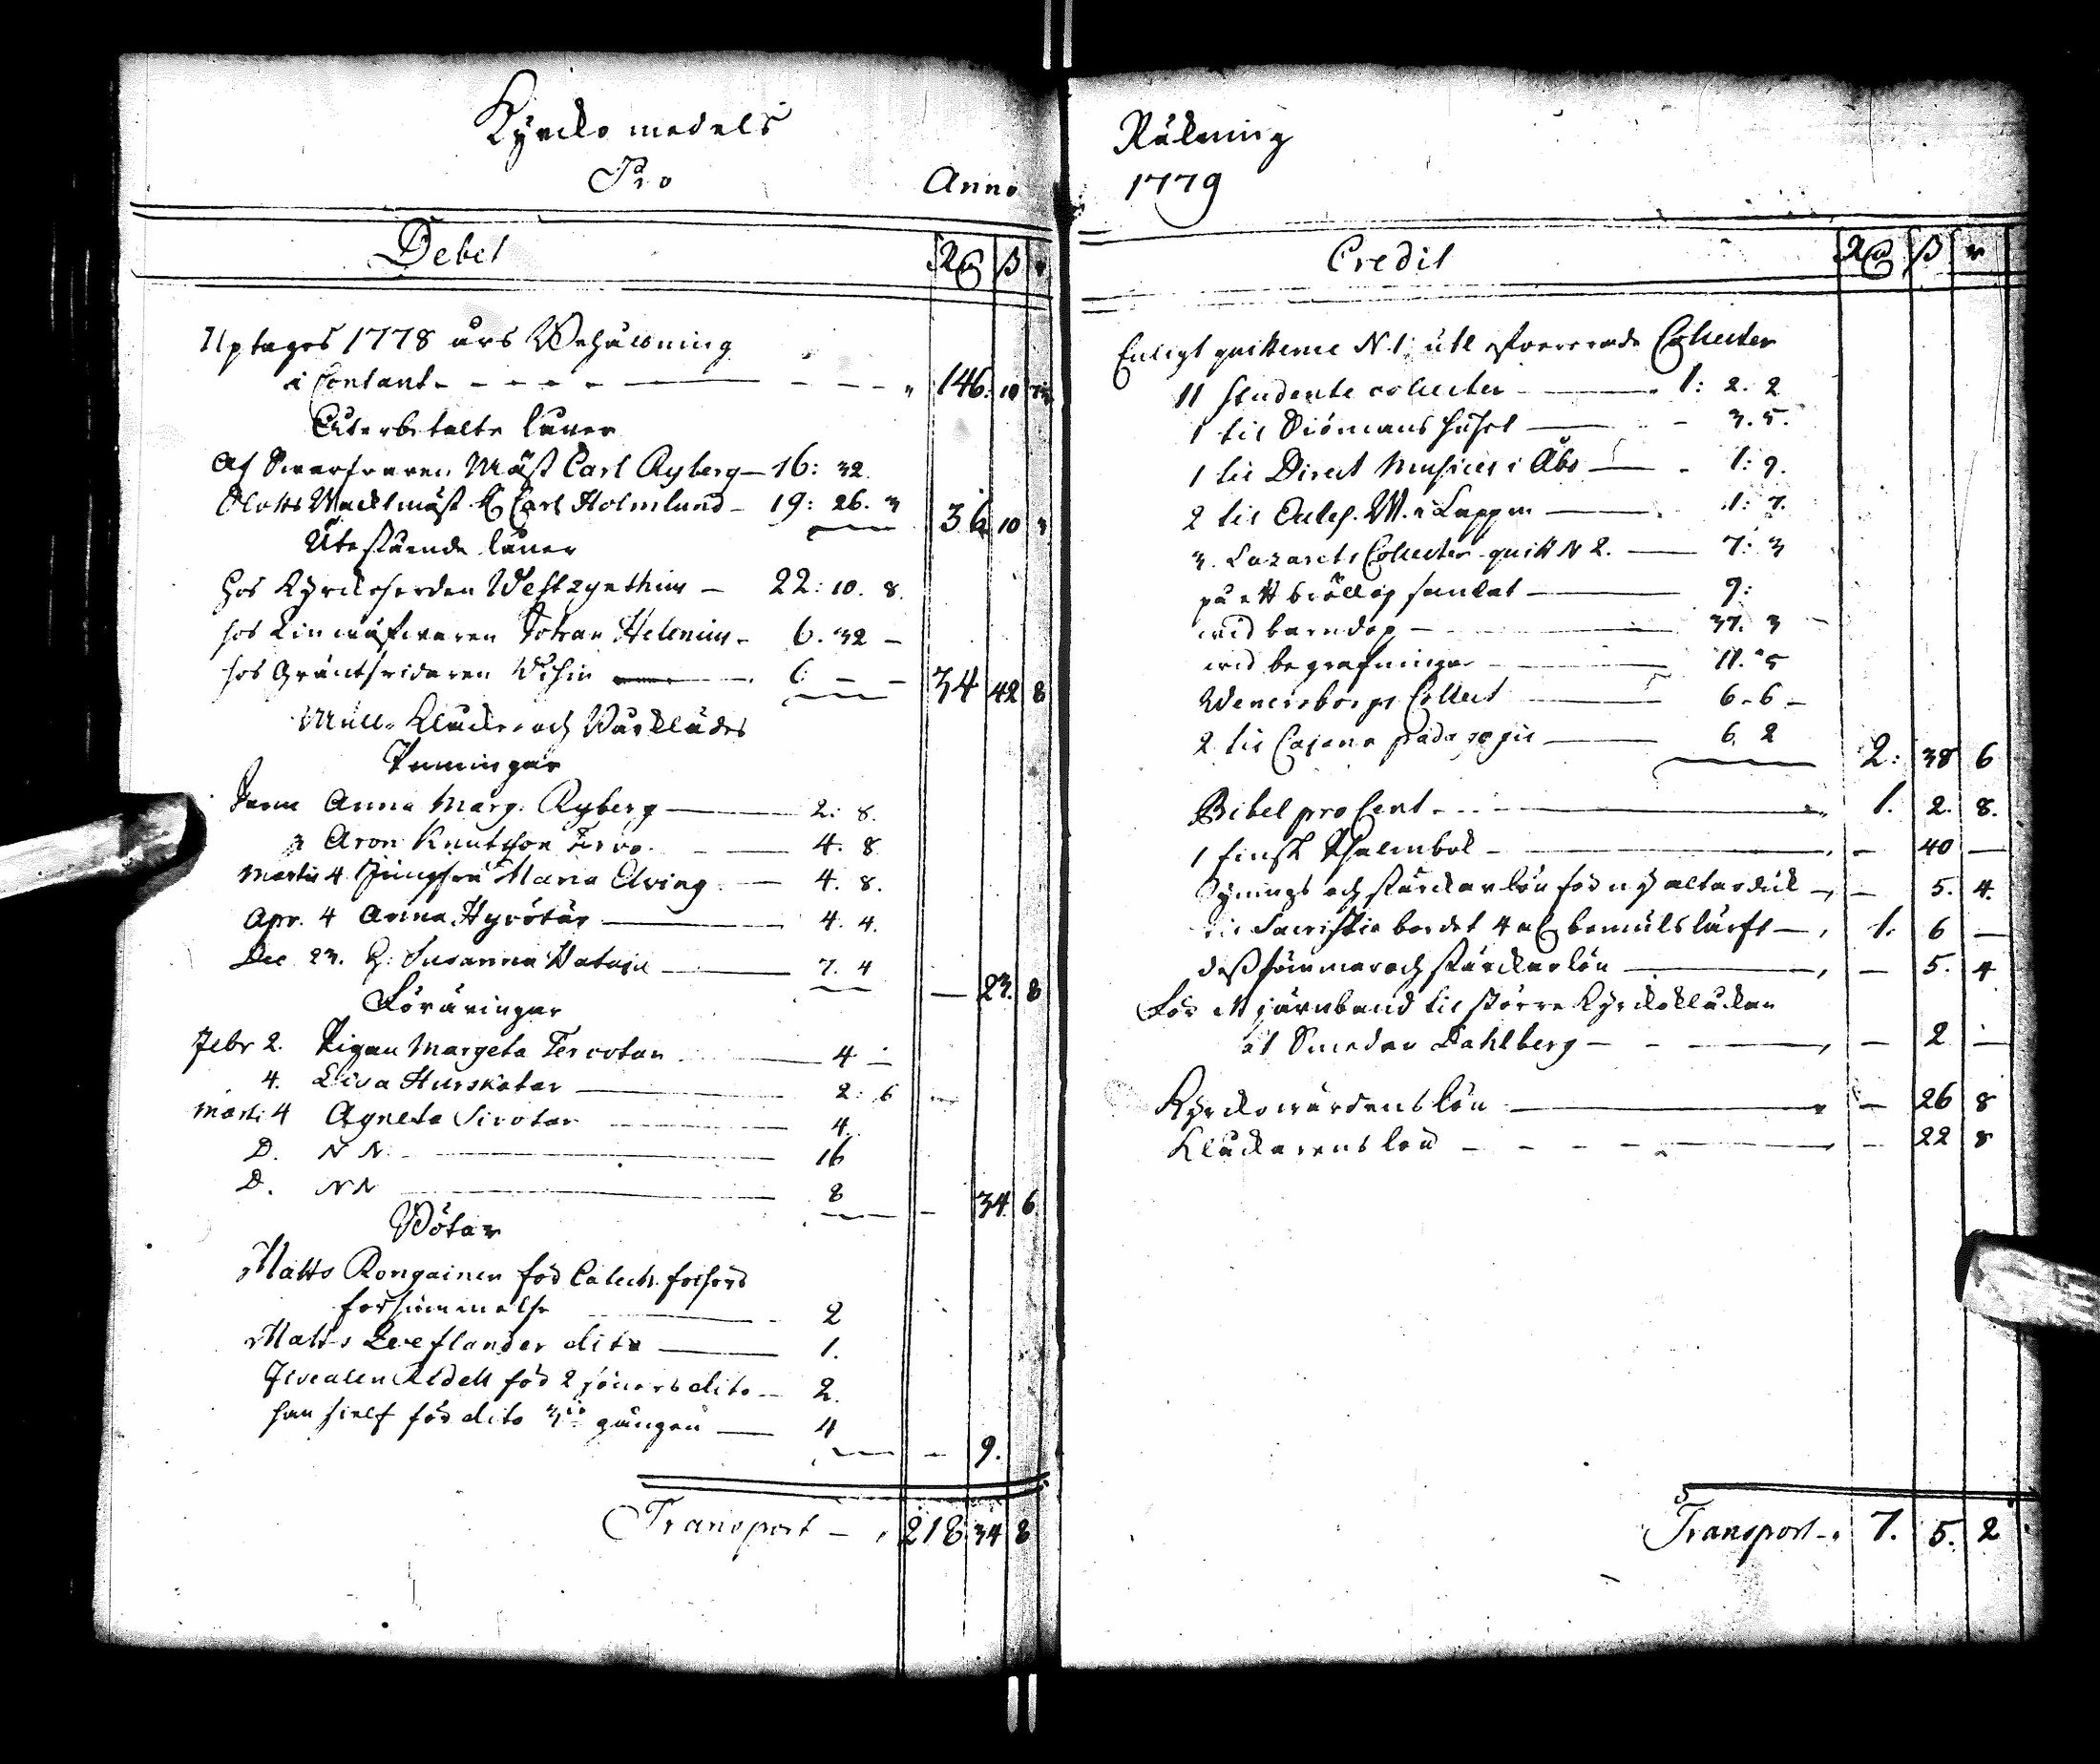 Kyrcko medels
Pro Anno
Debet Rd ß r
Uptages 1778 års Behållning
i Contant - - - - - 146. 10 7
Återbetalte låner
Af Swarfvaren Mäst Carl Ryberg - 16: 32.
Slotts Wacktmäst. Carl Holmlund - 19: 26. 3 36 10 3
Utestående låner
hos Kyrckoherden Westzynthius - 22: 10. 8.
hos Länmästaren Johan Helenius - 6. 32 -
hos Gräntsridaren 6: - - 34 42 8
Mull- Klocke- och Bårklädes
Penningar
Anna Marg. Ryberg 2: 8.
3 Aron Knutsson Tervo 4. 8
Martii 4 Jungfru Maria Elving 4. 8.
Apr. 4 Anna Hyrötär 4. 4.
Dec 23. H: Susanna Hataja 7. 4
— 23. 8
Föräringar
Febr 2. Pigan Margeta Tervotar 4 -
4. Lisa Hurskatar 2: 6
Marti 4 Agneta Sirotar 4.
D. N N. 16
D. N N 8
— 34. 6
Böter
Matts Rongainen för Catech. förhörs
försummelse 2
Matts Leeflander dito 1.
Aldell för 2 söners dito 2.
han sielf för dito 3ie gången 4
— 9.
Transport - 218. 34 8
Räkning
1779
Credit Rd ß r
Enligt quittence N. 1: utlefvererade Collecter
11 Studente collecter 1: 2. 2
1 til Siömanshuset 3. 5.
1 til Direct Musices i Åbo 1: 9.
2 til W. i Lappm 1: 7.
3. Lazarets Collecter quitt N 2. 7: 3
på ett bröllop samlat 9:
wid barndop 37. 3
wid begrafningar 11. 5
Wenersborgs Collect 6. 6 -
2 til Cajana pædagogie 6. 2
2: 38 6
Bibel pro Cent 1. 2. 8.
1 finsk Psalmbok - 40 —
och stärckarlön för ny altarduk — 5. 4.
til Sacristie bordet 4 al bomulslärft 1. 6 —
dess sömmar och stärckarlön — 5. 4
För ett järnband til större Kyrckoklockan
åt Smeden Dahlberg — 2 —
Kyrckowärdens lön — 26 8
Klockarens lön — 22 8
Transport - 7. 5. 2